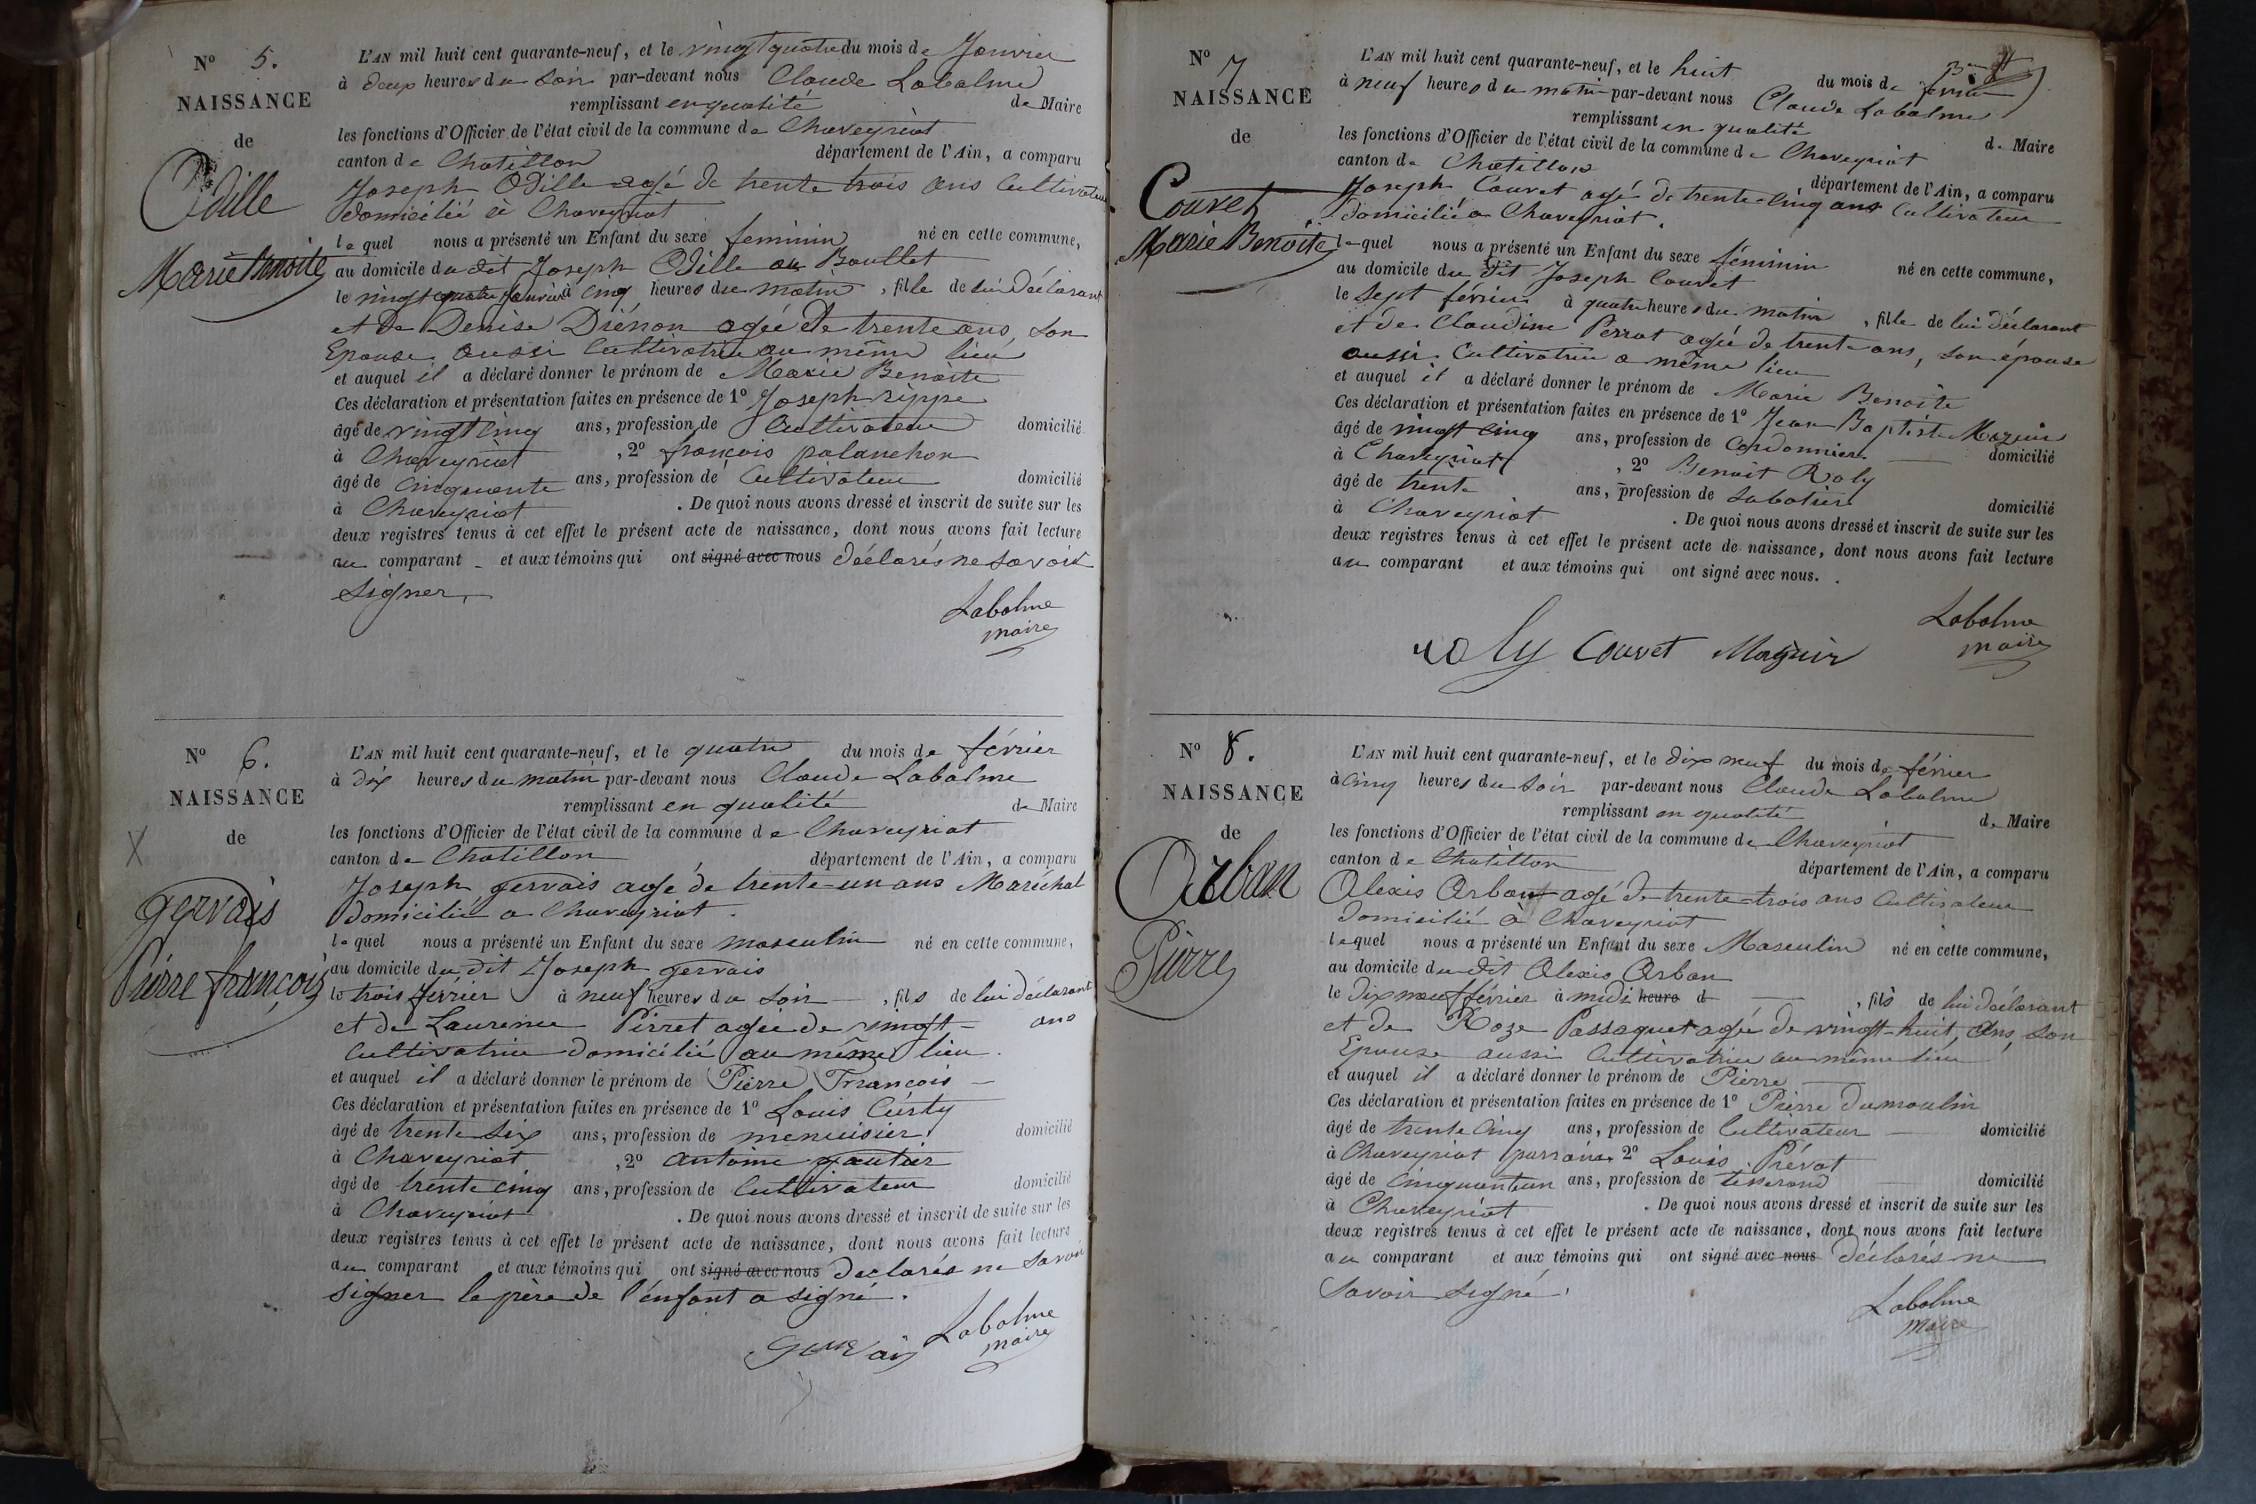 N° 5.
NAISSANCE
de
Odille
Marie Benoite
L'AN mil huit cent quarante-neuf, et le vingt quatre du mois de Janvier
à deux heures du soir par-devant nous Claude Labalme
remplissant en qualité de Maire
les fonctions d'Officier de l'état civil de la commune de Chaveyriat
canton de Chatillon département de l'Ain, a comparu
Joseph Odille agé de trente trois ans Cultivateur
domicilié à Chaveyriat
lequel nous a présenté un Enfant du sexe feminin né en cette commune,
au domicile du dit Joseph Odille au Boullet
le vingt quatre Janvier à cinq heures du matin, fille de lui déclarant
et de Denise Diénon agée de trente ans, son
Epouse aussi Cultivatrice au même lieu
et auquel il a déclaré donner le prénom de Marie Benoite
Ces déclaration et présentation faites en présence de 1° Joseph rippe
âgé de vingt cinq ans, profession de Cultivateur domicilié
à Chaveyriat, 2° françois palanchon
âgé de cinquante ans, profession de Cultivateur domicilié
à Chaveyriat. De quoi nous avons dressé et inscrit de suite sur les
deux registres tenus à cet effet le présent acte de naissance, dont nous avons fait lecture
au comparant et aux témoins qui ont signé avec nous déclarés ne savoir
signer.
Labalme
maire
N° 6.
NAISSANCE
X
de
gervais
Pierre françois
L'AN mil huit cent quarante-neuf, et le quatre du mois de février
à dix heures du matin par-devant nous Claude Labalme
remplissant en qualité de Maire
les fonctions d'Officier de l'état civil de la commune de Chaveyriat
canton de Chatillon département de l'Ain, a comparu
Joseph gervais agé de trente-un ans Maréchal
domicilié a Chaveyriat.
lequel nous a présenté un Enfant du sexe masculin né en cette commune,
au domicile du dit Joseph gervais
le trois février à neuf heures du soir, fils de lui déclarant
et de Laurence Pirret agée de vingt- ans
Cultivatrice domicilié au même lieu.
et auquel il a déclaré donner le prénom de Pierre François
Ces déclaration et présentation faites en présence de 1° Louis Cursty
âgé de trente six ans, profession de menuisier. domicilié
à Chaveyriat, 2° antoine gautier
âgé de trente cinq ans, profession de Cultivateur domicilié
à Chaveyriat. De quoi nous avons dressé et inscrit de suite sur les
deux registres tenus à cet effet le présent acte de naissance, dont nous avons fait lecture
au comparant et aux témoins qui ont signé avec nous declarés ne savoir
signer le père de l'enfant a signé.
Gervais Labalme
maire
N° 7
NAISSANCE
de
Couvet
Marie Benoite
L'AN mil huit cent quarante-neuf, et le huit du mois de février
à neuf heures du matin par-devant nous Claude Labalme
remplissant en qualité de Maire
les fonctions d'Officier de l'état civil de la commune de Chaveyriat
canton de Chatillon département de l'Ain, a comparu
Joseph Couvet agé de trente-cinq ans Cultivateur
domicilié a Chaveyriat.
lequel nous a présenté un Enfant du sexe féminin né en cette commune,
au domicile du dit Joseph Couvet
le sept février à quatre heures du matin, fille de lui déclarant
et de Claudine Perrat agée de trente ans, son épouse
aussi Cultivatrice a même lieu
et auquel il a déclaré donner le prénom de Marie Benoite
Ces déclaration et présentation faites en présence de 1° Jean Baptiste Mazuir
âgé de vingt cinq ans, profession de Cordonnier domicilié
à Chaveyriat, 2° Benoit Roly
âgé de trente ans, profession de Sabotier domicilié
à Chaveyriat. De quoi nous avons dressé et inscrit de suite sur les
deux registres tenus à cet effet le présent acte de naissance, dont nous avons fait lecture
au comparant et aux témoins qui ont signé avec nous.
Labalme
maire
roly Couvet Mazuir
N° 8.
NAISSANCE
de
Orban
Pierre
L'AN mil huit cent quarante-neuf, et le dix neuf du mois de février
à cinq heures du soir par-devant nous Claude Labalme
remplissant en qualité de Maire
les fonctions d'Officier de l'état civil de la commune de Chaveyriat
canton de Chatillon département de l'Ain, a comparu
Alexis Orban agé de trente-trois ans Cultivateur
domicilié à Chaveyriat
lequel nous a présenté un Enfant du sexe Masculin né en cette commune,
au domicile du dit Alexis Orban
le dix neuf février à midi heure d, fils de lui déclarant
et de Roze Passaquet agée de vingt-huit, ans, son
Epouse aussi Cultivatrice au même lieu
et auquel il a déclaré donner le prénom de Pierre
Ces déclaration et présentation faites en présence de 1° Pierre Dumoulin
âgé de trente cinq ans, profession de Cultivateur domicilié
à Chaveyriat parrain. 2° Louis Prévat
âgé de cinquante un ans, profession de tisserand domicilié
à Chaveyriat. De quoi nous avons dressé et inscrit de suite sur les
deux registres tenus à cet effet le présent acte de naissance, dont nous avons fait lecture
au comparant et aux témoins qui ont signé avec nous déclarés ne
savoir signé.
Labalme
maire